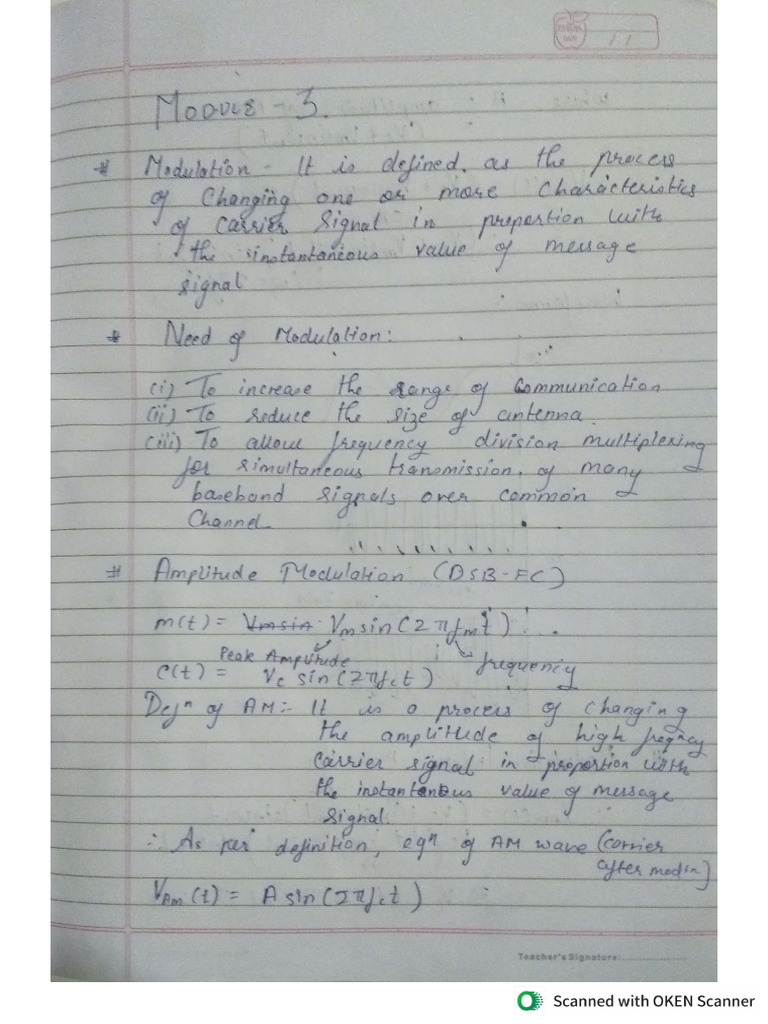 MODULE 3.
# Modulation - It is defined. as the process
of changing one or more characteristics
of carrier signal in preportion with
the instantaneous value of message
signal
# Need of Modulation:
(i) To increase the range of communication
(ii) To reduce the size of antenna.
(iii) To allow frequency division multiplexing
for simultaneous transmission. of many
baseband signals over common
Channel.
# Amplitude Modulation (DSB-FC)
m(t) = Vmsin Vm sin(2πfmt)
Peak Amplitude
frequency
c(t) = Vc sin(2πfct)
Defn of AM:- It is a process of changing
the amplitude of high freqncy
carrier signal in proportion with
the instantaneous value of message
signal.
∴ As per definition, eqn of AM wave (carrier
after modsn]
VAm (t) = A sin(2πfct)
Teacher's Signature:
Scanned with OKEN Scanner